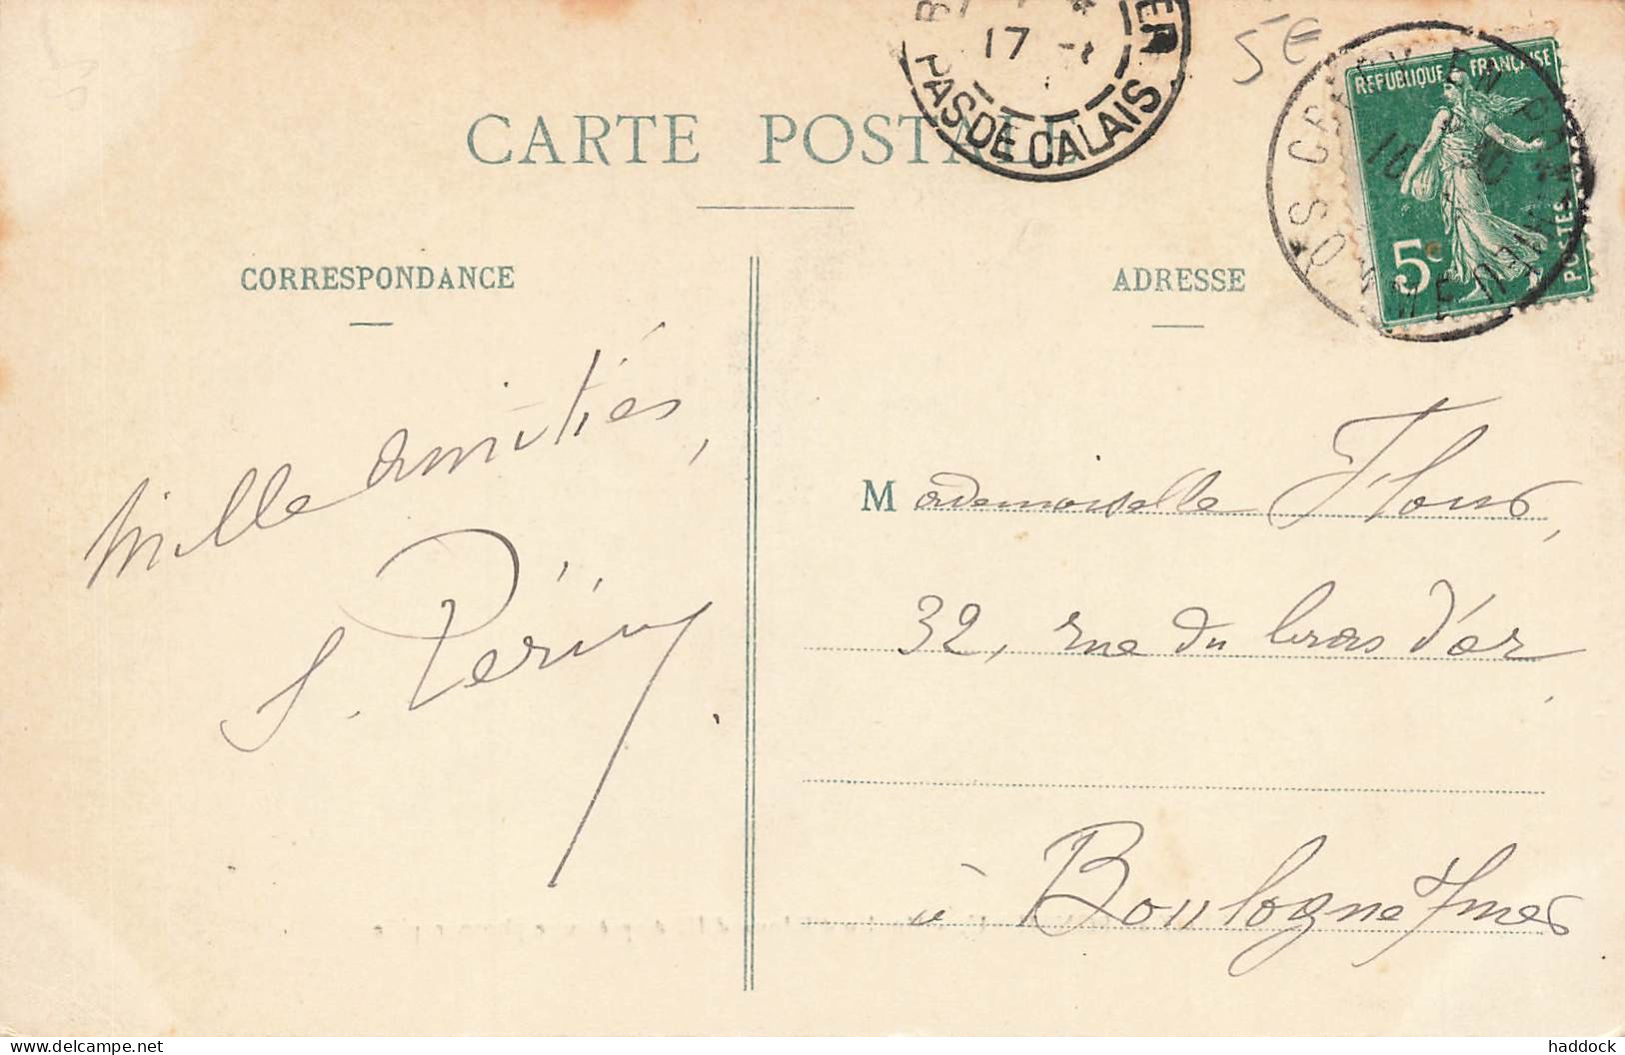 5€
17
PAS DE CALAIS
REPUBLIQUE FRANÇAISE
POSTES
5c
CARTE POSTALE
CORRESPONDANCE
ADRESSE
Mille amitiés,
S. Périn
Mademoiselle Flour,
32, rue du bras d'or
à Boulogne s/mer
delcampe.net
haddock